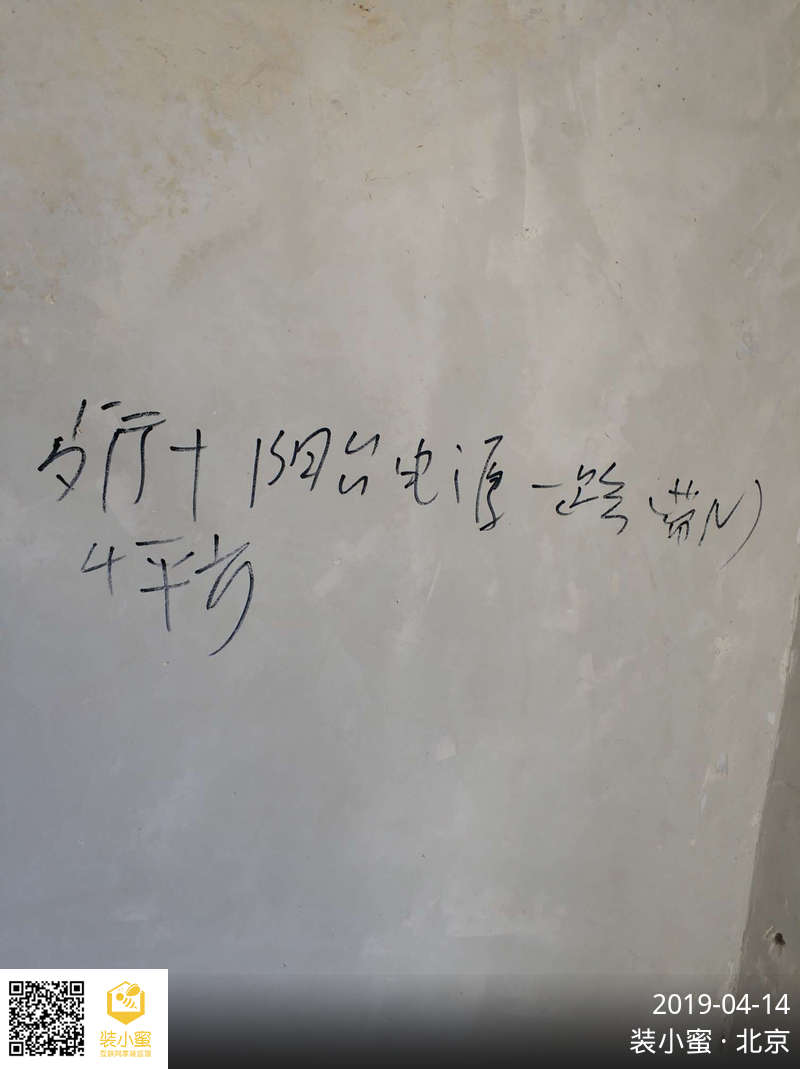 客厅+阳台电源一路(带N)
4平方
装小蜜
2019-04-14
装小蜜·北京